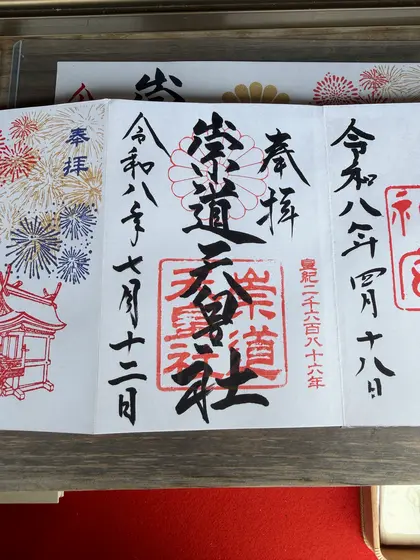 令和八年四月十八日
神宮
奉拝
皇紀二千六百八十六年
崇道天皇社
崇道
天皇社
令和八年七月十二日
奉拝